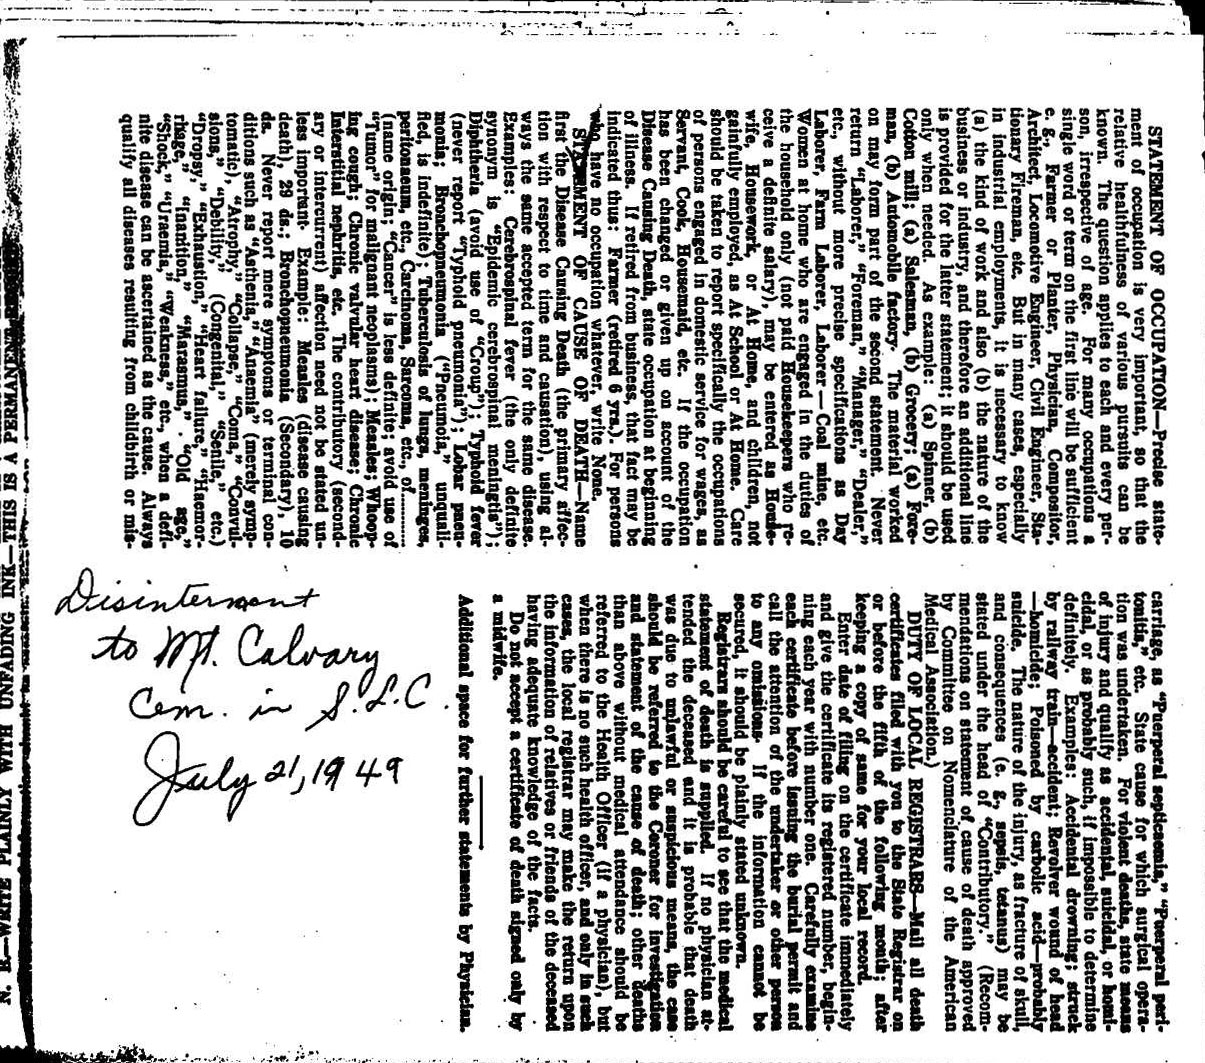 STATEMENT OF OCCUPATION—Precise state-
ment of occupation is very important, so that the
relative healthfulness of various pursuits can be
known. The question applies to each and every per-
son, irrespective of age. For many occupations a
single word or term on the first line will be sufficient
e. g., Farmer or Planter, Physician, Compositor,
Architect, Locomotive Engineer, Civil Engineer, Sta-
tionary Fireman, etc. But in many cases, especially
in industrial employments, it is necessary to know
(a) the kind of work and also (b) the nature of the
business or industry, and therefore an additional line
is provided for the latter statement; it should be used
only when needed. As example: (a) Spinner, (b)
Cotton mill; (a) Salesman, (b) Grocery; (a) Fore-
man, (b) Automobile factory. The material worked
on may form part of the second statement. Never
return "Laborer," "Foreman," "Manager," "Dealer,"
etc., without more precise specifications as Day
Laborer, Farm Laborer, Laborer—Coal mine, etc.
Women at home who are engaged in the duties of
the household only (not paid Housekeepers who re-
ceive a definite salary), may be entered as House-
wife, Housework, or At Home, and children, not
gainfully employed, as At School or At Home. Care
should be taken to report specifically the occupations
of persons engaged in domestic service for wages, as
Servant, Cook, Housemaid, etc. If the occupation
has been changed or given up on account of the
Disease Causing Death, state occupation at beginning
of illness. If retired from business, that fact may be
indicated thus: Farmer (retired 6 yrs.). For persons
who have no occupation whatever, write None.
STATEMENT OF CAUSE OF DEATH—Name
first the Disease Causing Death (the primary affec-
tion with respect to time and causation), using al-
ways the same accepted term for the same disease.
Examples: Cerebrospinal fever (the only definite
synonym is "Epidemic cerebrospinal meningtis");
Diphtheria (avoid use of "Croup"); Typhoid fever
(never report "Typhoid pneumonia"); Lobar pneu-
monia; Bronchopneumonia ("Pneumoia," unquali-
fied, is indefinite); Tuberculosis of lungs, meninges,
peritonaeum, etc., Carcinoma, Sarcoma, etc., of..........
(name origin; "Cancer" is less definite; avoid use of
"Tumor" for malignant neoplasms); Measles; Whoop-
ing cough; Chronic valvular heart disease; Chronic
Interstitial nephritis, etc. The contributory (second-
ary or intercurrent) affection need not be stated un-
less important. Example: Measles (disease causing
death), 29 ds.; Bronchopneumonia (Secondary), 10
ds. Never report mere symptoms or terminal con-
ditions such as "Asthenia," "Anaemia" (merely symp-
tomatic), "Atrophy," "Collapse," "Coma," "Convul-
sions," "Debility," (Congenital," "Senile," etc.)
"Dropsy," "Exhaustion," "Heart failure," "Haemor-
rhage," "Inanition," "Marasmus," "Old age,"
"Shock," "Uraemia," "Weakness," etc., when a defi-
nite disease can be ascertained as the cause. Always
qualify all diseases resulting from childbirth or mis-
carriage, as "Puerperal septicaemia," "Puerperal peri-
tonitis," etc. State cause for which surgical opera-
tion was undertaken. For violent deaths, state means
of injury and qualify as accidental, suicidal, or homi-
cidal, or as probably such, if impossible to determine
definitely. Examples: Accidental drowning; struck
by railway train—accident; Revolver wound of head
—homicide; Poisoned by carbolic acid—probably
suicide. The nature of the injury, as fracture of skull,
and consequences (e. g., sepsis, tetanus) may be
stated under the head of "Contributory." (Recom-
mendations on statement of cause of death approved
by Committee on Nomenclature of the American
Medical Association.)
DUTY OF LOCAL REGISTRARS—Mail all death
certificates filed with you to the State Registrar on
or before the fifth of the following month; after
keeping a copy of same for your local record.
Enter date of filing on the certificate immediately
and give the certificate its registered number, begin-
ning each year with number one. Carefully examine
each certificate before issuing the burial permit and
call the attention of the undertaker or other person
to any omissions. If the information cannot be
secured, it should be plainly stated unknown.
Registrars should be careful to see that the medical
statement of death is supplied. If no physician at-
tended the deceased and it is probable that death
was due to unlawful or suspicious means, the case
should be referred to the Coroner for investigation
and statement of the cause of death; other deaths
than above without medical attendance should be
referred to the Health Officer (if a physician), but
when there is no such health officer, and only in such
cases, the local registrar may make the return upon
the information of relatives or friends of the deceased
having adequate knowledge of the facts.
Do not accept a certificate of death signed only by
a midwife.
Additional space for further statements by Physician.
Disinterment
to Mt. Calvary
Cem. in S.L.C.
July 21, 1949
N. B.—WRITE PLAINLY WITH UNFADING INK—THIS IS A PERMANENT